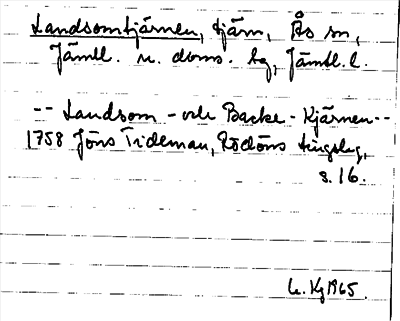 Landsomtjärnen, tjärn, Ås sn,
Jämtl. n. doms. tg, Jämtl. l.
-- Landsom - och Backe - Kjärnen --
1758 Jöns Tideman, Rödöns tingslag,
s. 16.
1965.